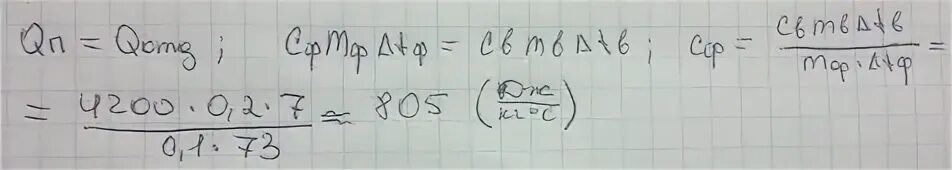 Qп = Qотд ; Cф mф Δtф = Cв mв Δtв ; Cф = Cв mв Δtв / mф · Δtф =
= 4200 · 0,2 · 7 / 0,1 · 73 ≈ 805 (Дж / кг °C)